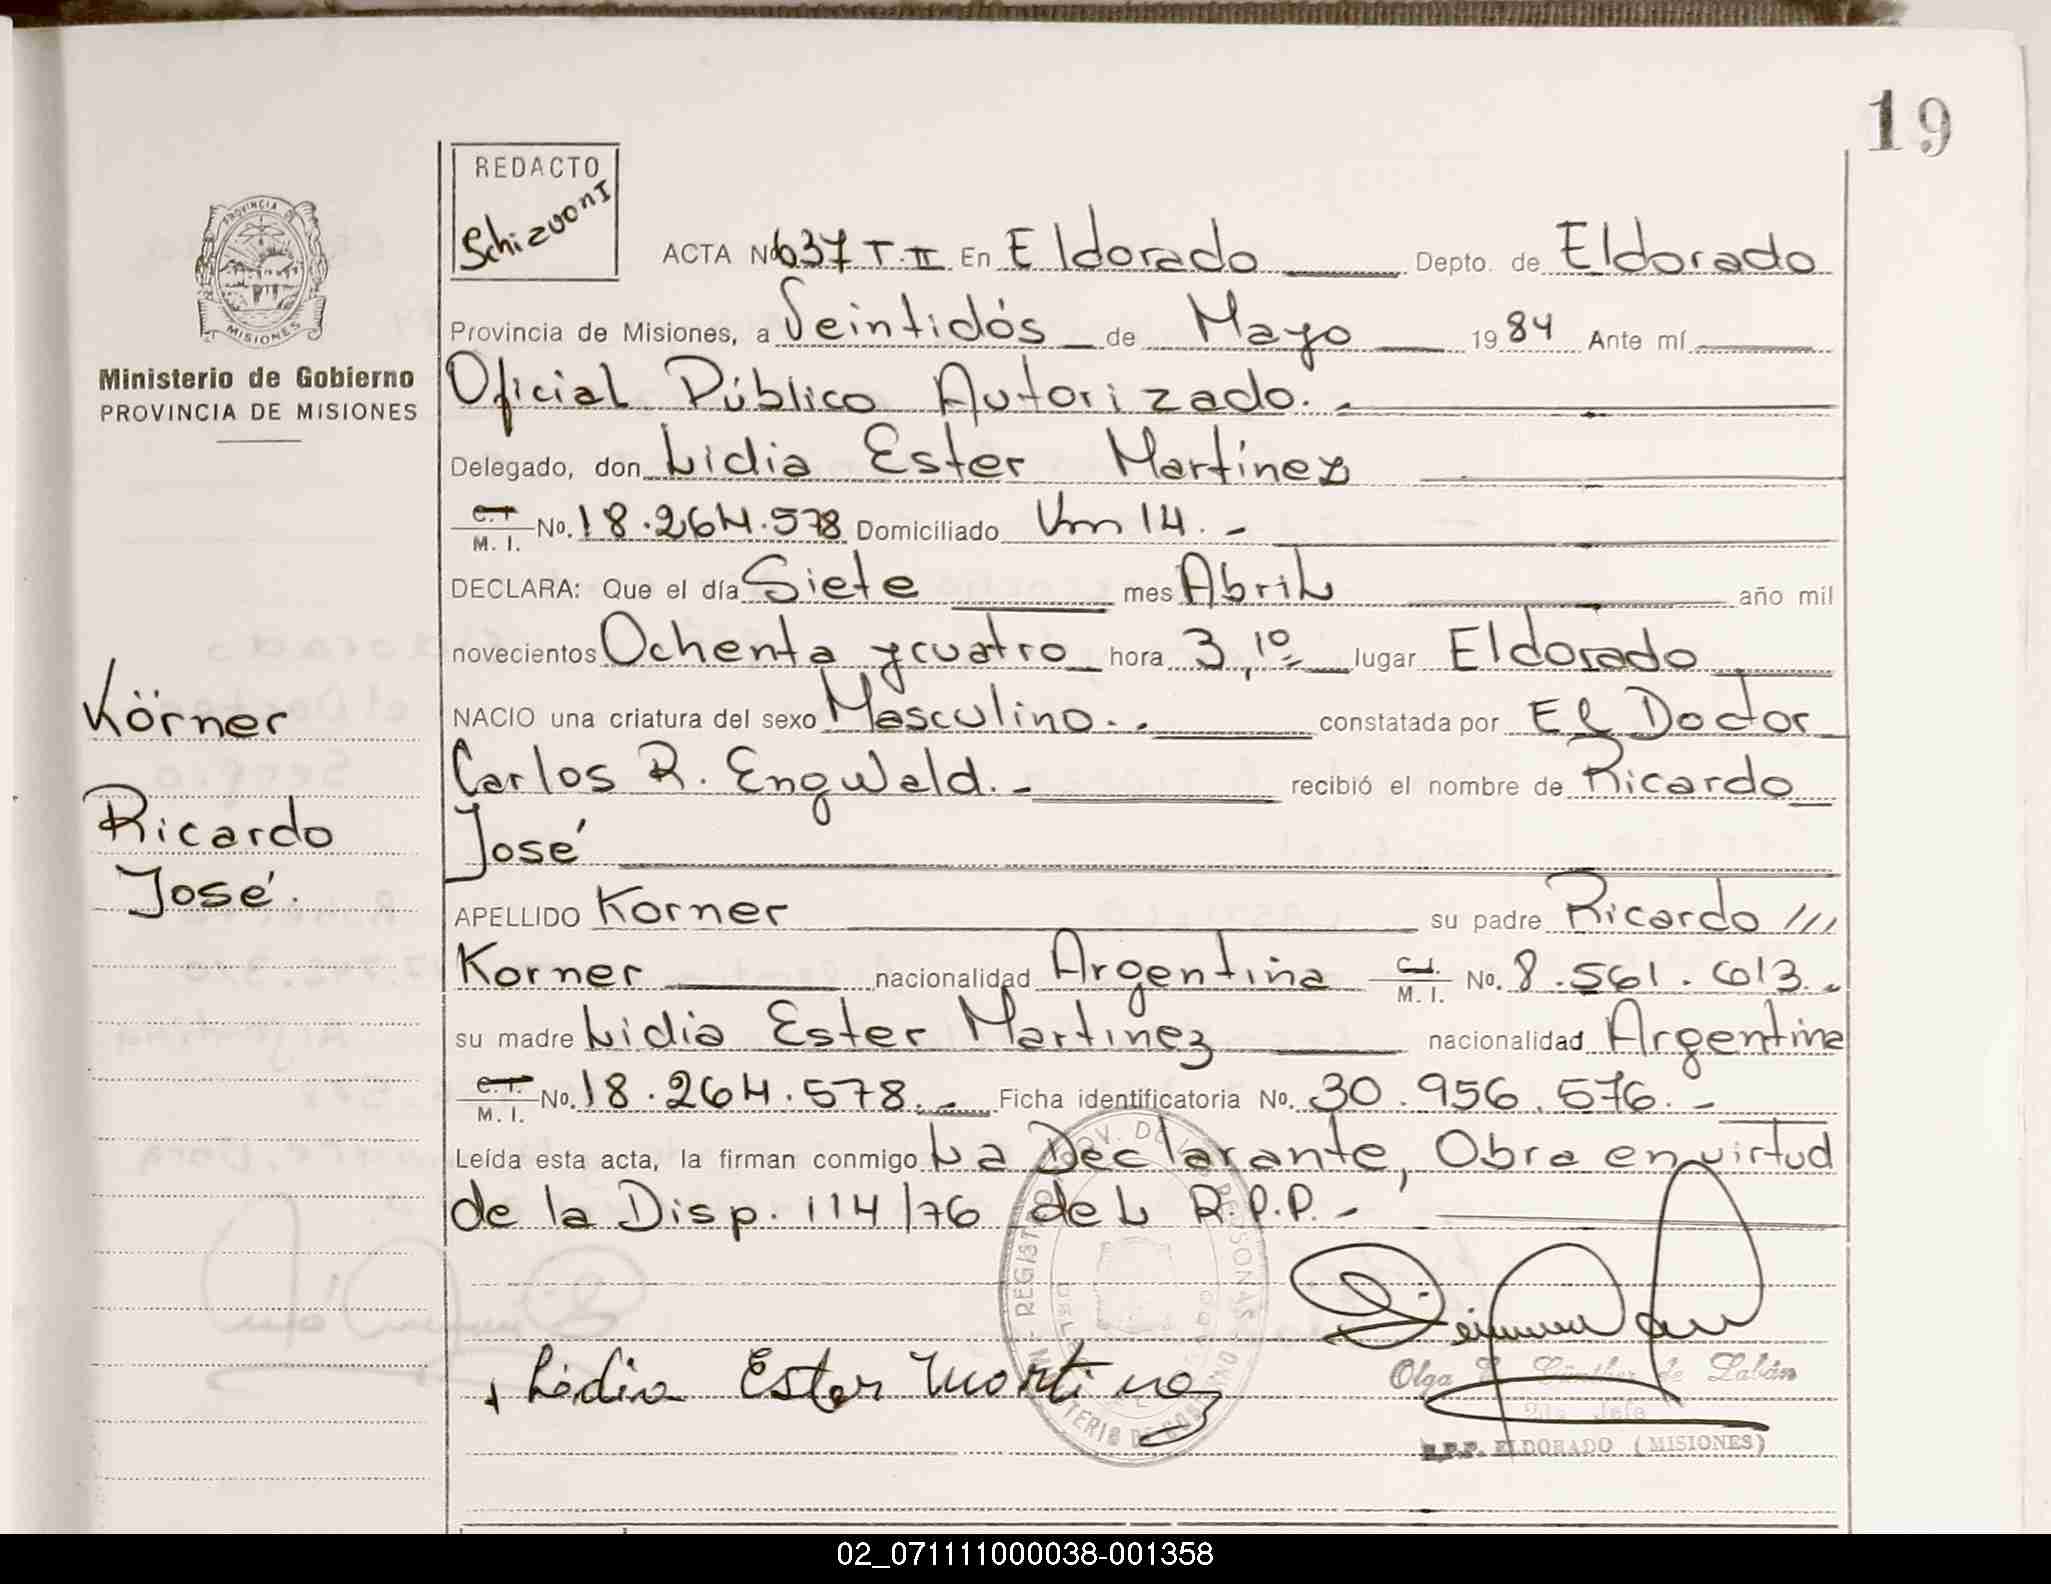 19
REDACTO
Schizvoni
PROVINCIA DE
MISIONES
Ministerio de Gobierno
PROVINCIA DE MISIONES
ACTA No 637 T. II En Eldorado Depto. de Eldorado
Provincia de Misiones, a Veintidós de Mayo 1984 Ante mí
Oficial Público Autorizado.-
Delegado, don Lidia Ester Martínez
C.I. M. I. No. 18.264.578 Domiciliado Km 14.-
DECLARA: Que el día Siete mes Abril año mil
novecientos Ochenta y cuatro hora 3,10 lugar Eldorado
Körner
NACIO una criatura del sexo Masculino.- constatada por El Doctor
Carlos R. Engwald.- recibió el nombre de Ricardo
Ricardo
José
José.
APELLIDO Korner su padre Ricardo ///
Korner nacionalidad Argentina C.I. M. I. No. 8.561.613.-
su madre Lidia Ester Martinez nacionalidad Argentina
C.I. M. I. No. 18.264.578.- Ficha identificatoria No. 30.956.576.-
Leída esta acta, la firman conmigo La Declarante, Obra en virtud
de la Disp. 114/76 del R.P.P.-
Lidia Ester Martinez
Olga de Labán
2da Jefe
R.P.P. ELDORADO (MISIONES)
02_071111000038-001358